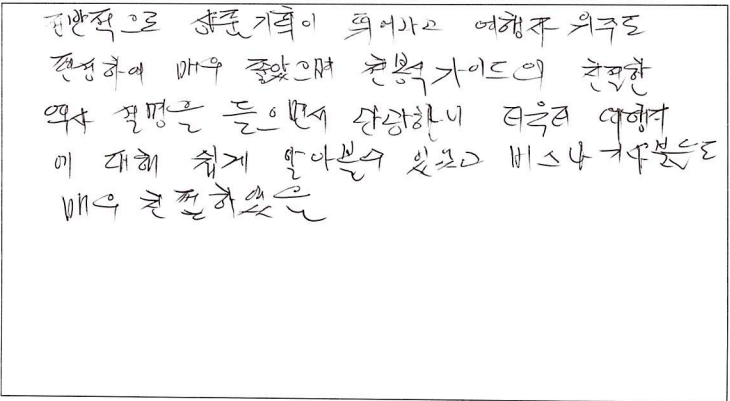 전반적으로 상품기획이 뛰어나고 여행자 위주로
편성하여 매우 좋았으며 천봉석가이드의 친절한
역사 설명을 들으면서 관광하니 더욱더 여행지
에 대해 쉽게 알아볼수 있었고 버스나 기사분들도
매우 친절하였음